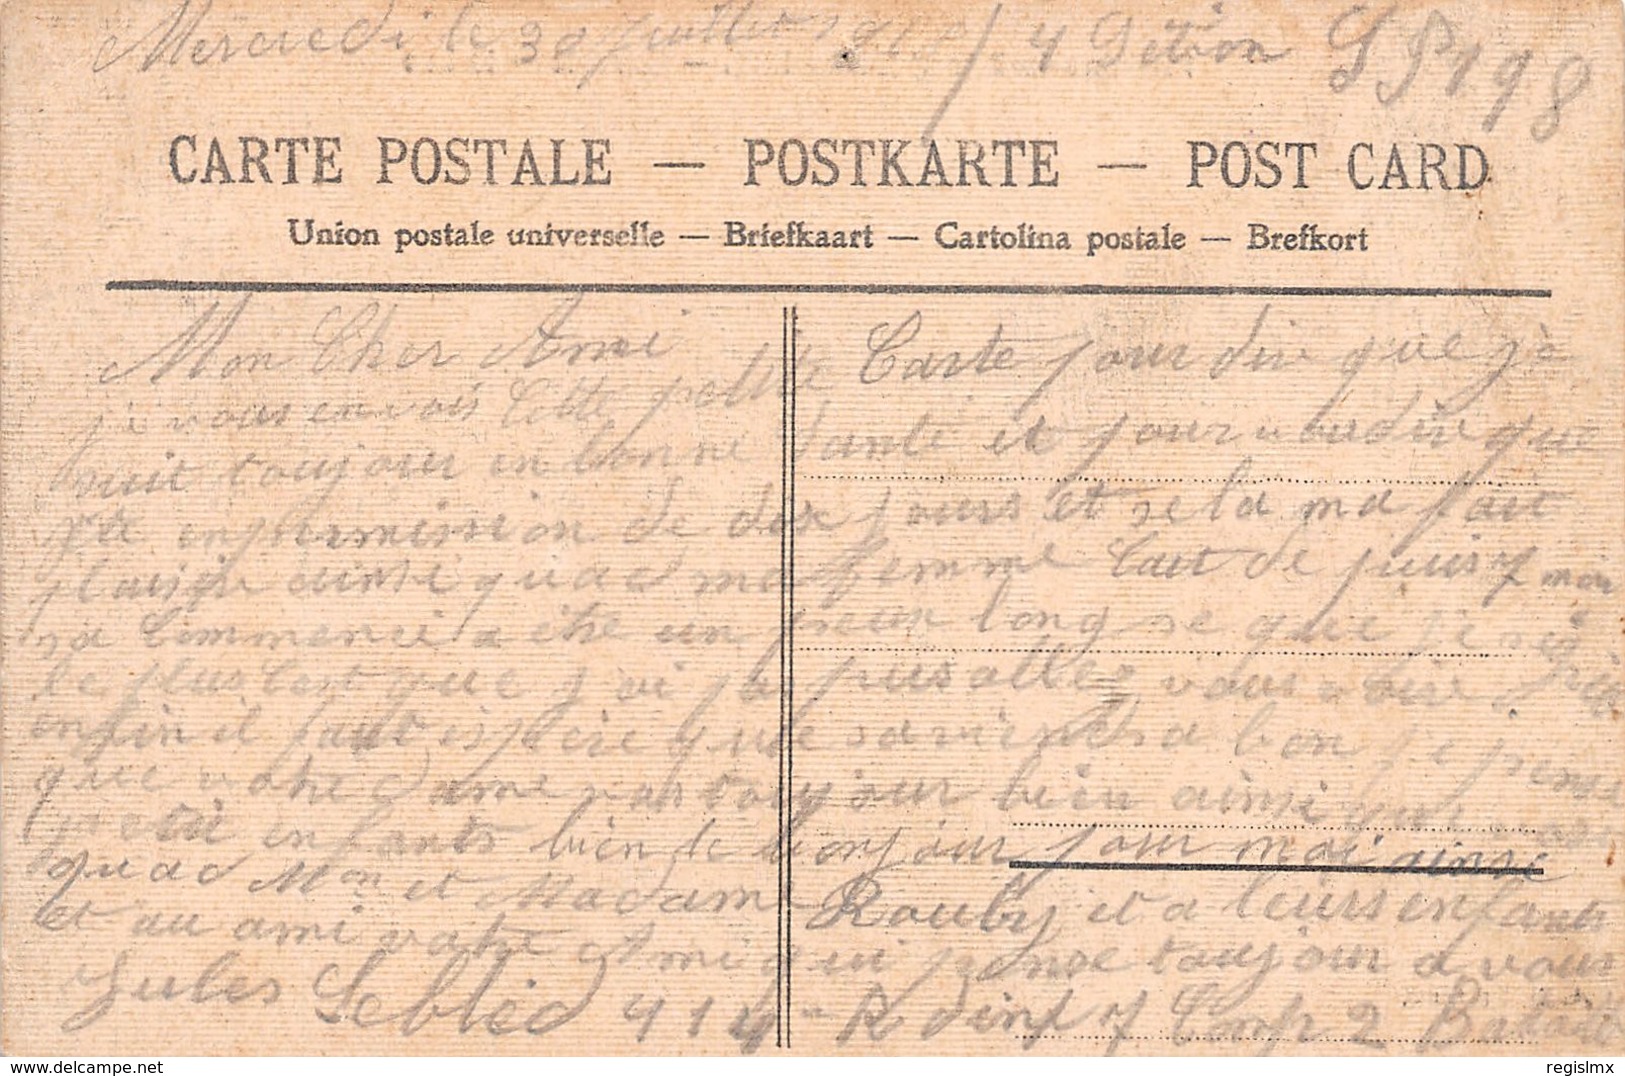 Mercredi le 30 juillet 1915 / 4 Section SP 198
CARTE POSTALE — POSTKARTE — POST CARD
Union postale universelle — Briefkaart — Cartolina postale — Brefkort
Mon Cher Ami
je vous envois Cette petite Carte pour dir que je
suit toujour en bonne santé et pour vou dir que
j'ai en permission de dix jours et sela ma fait
plaisir ainsi qua ma femme Cart de puis 7 mois
sa Commence a être un peux long se que je
le plus Cest que j'ai pas pus allez vous voire
enfin il faut espére que sa viendra bon je pense
que votre Dame vas toujour bien ainsi que vos
petit enfants bien le bonjour pour moi ainsi
qua Mon et Madame Rouby et a leurs enfants
et au ami votre Ami qui pense toujour a vous
Jules Lebléd 414e R d inf 7 Comp 2 Bataill
delcampe.net
regislmx